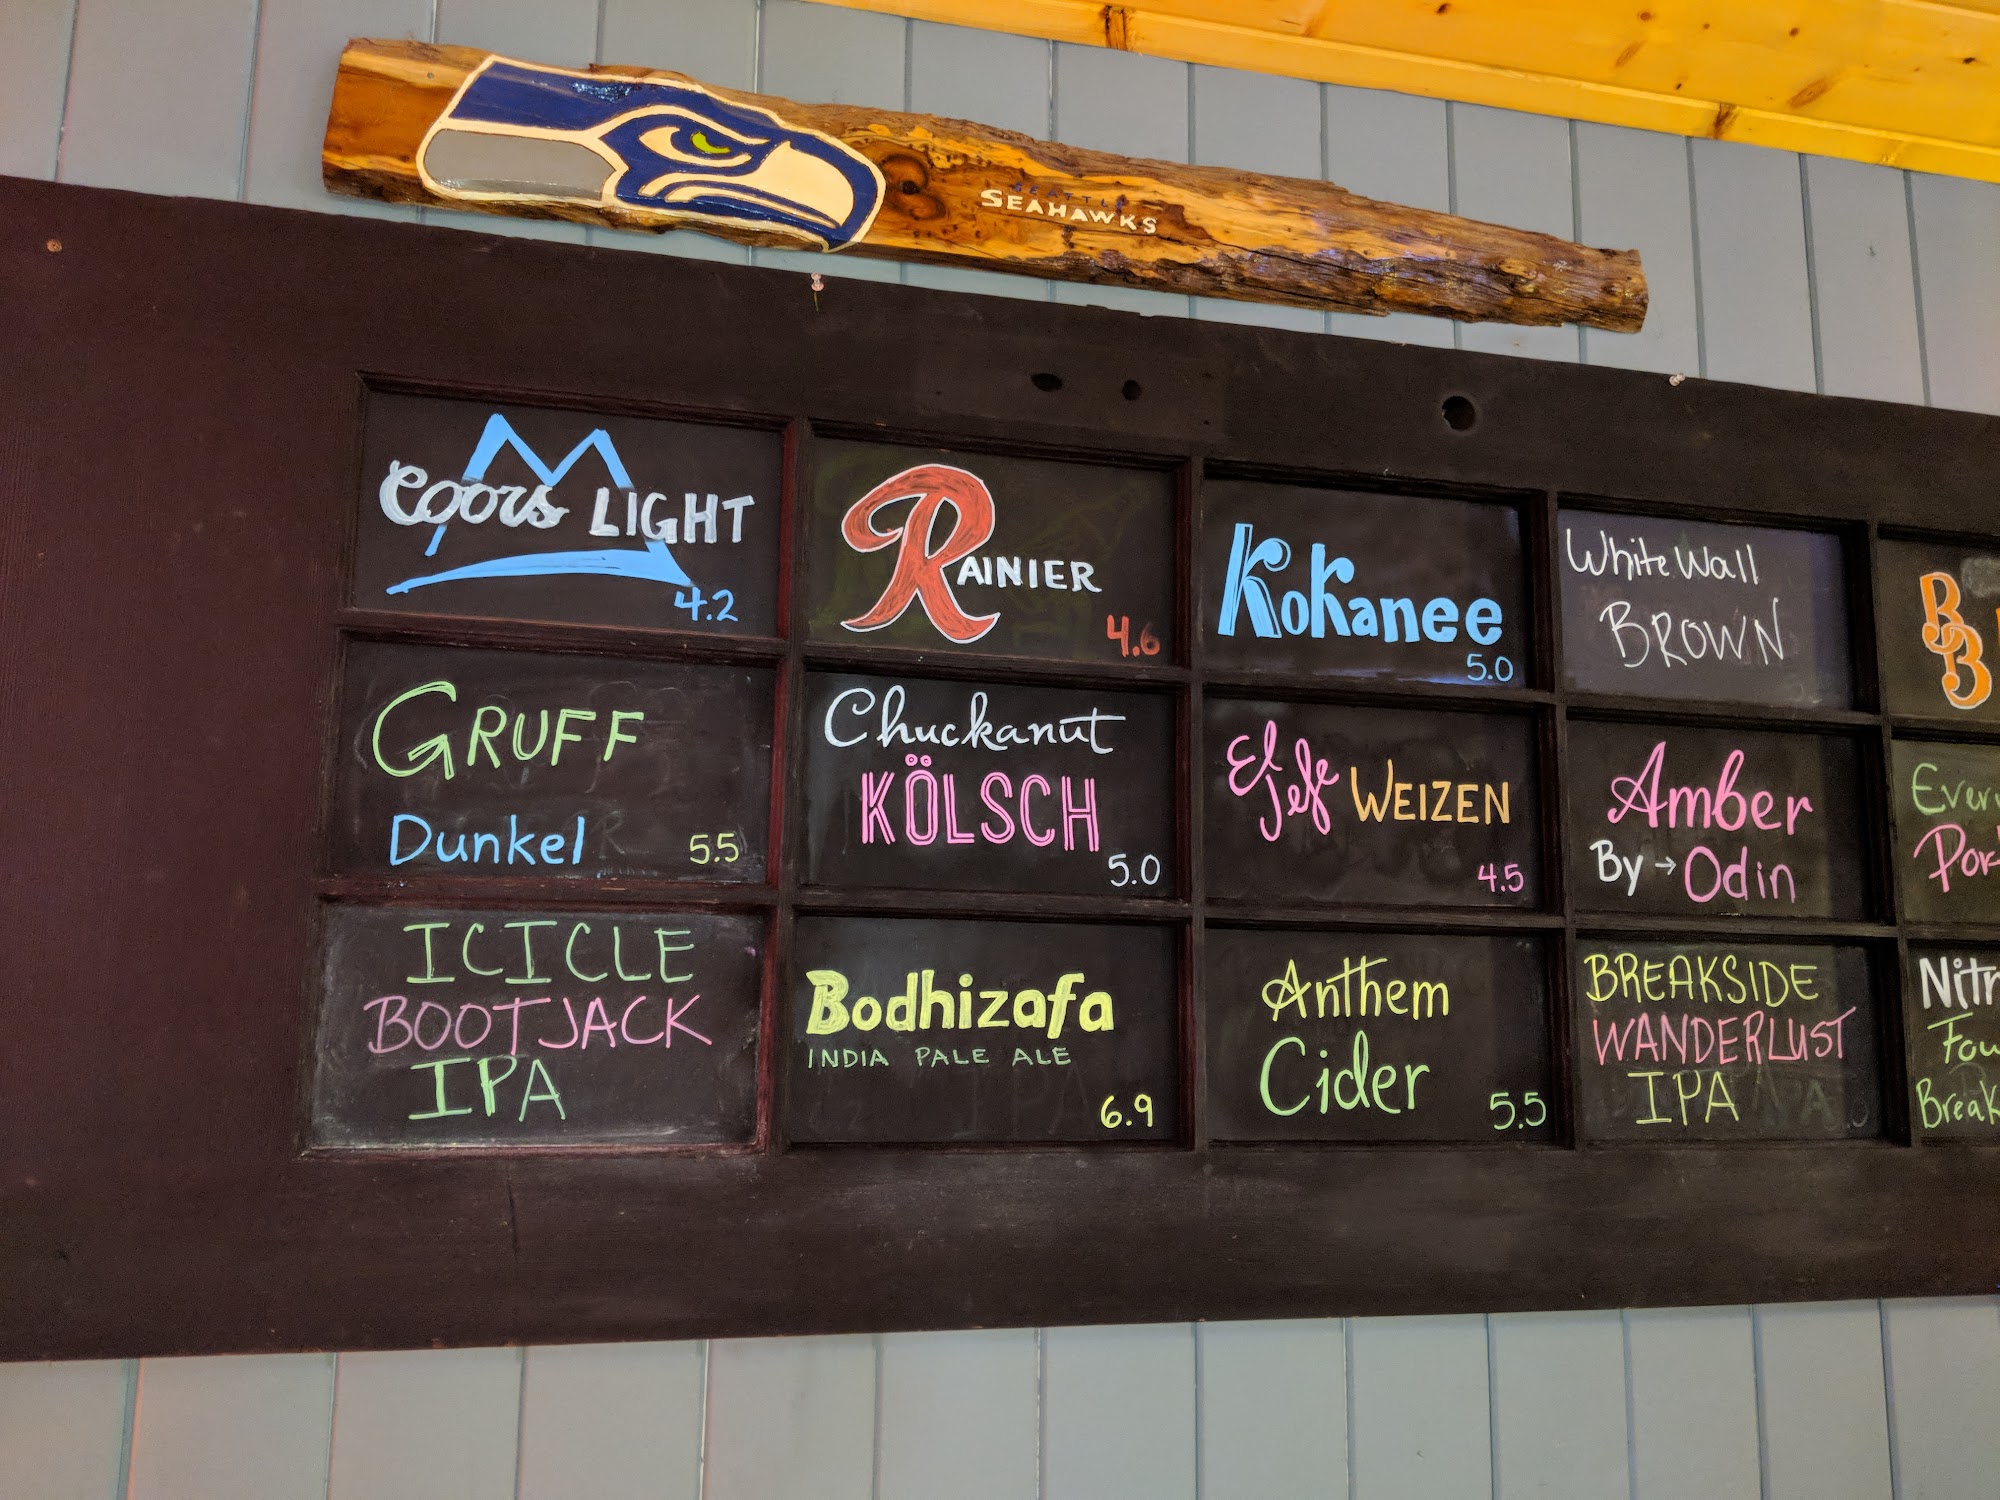 SEATTLE
SEAHAWKS
Coors LIGHT
4.2
RAINIER
4.6
Kokanee
5.0
White Wall
BROWN
GRUFF
Dunkel
5.5
Chuckanut
KÖLSCH
5.0
El Jefe WEIZEN
4.5
Amber
By → Odin
ICICLE
BOOTJACK
IPA
Bodhizafa
INDIA PALE ALE
6.9
Anthem
Cider
5.5
BREAKSIDE
WANDERLUST
IPA